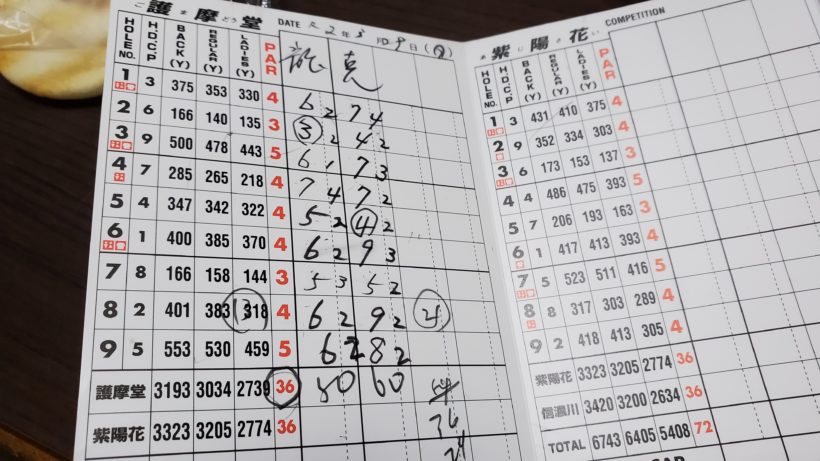 ご護ま摩どう堂 DATE 2年5月9日( )
HOLE NO. HDCP BACK(Y) REGULAR(Y) LADIES(Y) PAR 克
1 3 375 353 330 4 6 2 7 4
2 6 166 140 135 3 3 2 4 2
3 9 500 478 443 5 6 1 7 3
4 7 285 265 218 4 7 4 7 2
5 4 347 342 322 4 5 2 4 2
6 1 400 385 370 4 6 2 9 3
7 8 166 158 144 3 5 3 5 2
8 2 401 383 318 4 6 2 9 2
9 5 553 530 459 5 6 2 8 2
護摩堂 3193 3034 2739 36 50 60
紫陽花 3323 3205 2774 36 36
24
紫陽花 COMPETITION
HOLE NO. HDCP BACK(Y) REGULAR(Y) LADIES(Y) PAR
1 3 431 410 375 4
2 9 352 334 303 4
3 6 173 153 137 3
4 4 486 475 393 5
5 7 206 193 163 3
6 1 417 413 393 4
7 5 523 511 416 5
8 8 317 303 289 4
9 2 418 413 305 4
紫陽花 3323 3205 2774 36
信濃川 3420 3200 2634 36
TOTAL 6743 6405 5408 72